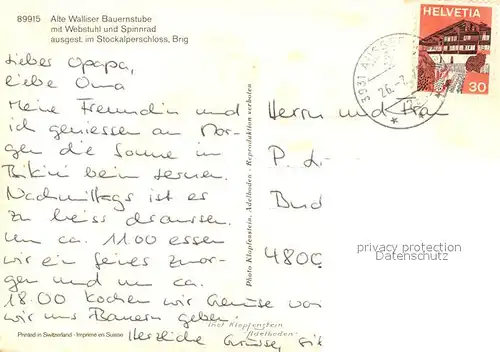 89915 Alte Walliser Bauernstube
mit Webstuhl und Spinnrad
ausgest. im Stockalperschloss, Brig
HELVETIA
30
3931
26.
Lieber Opapa,
liebe Oma
Meine Freundin und
ich geniessen am Mor-
gen die Sonne im
Bikini beim Lernen.
Nachmittags ist es
zu heiss draussen.
Um ca. 1100 essen
wir ein feines Zmor-
gen und um ca.
18.00 kochen wir Gemüse von
wir uns Bauern geben.
Herzliche Grüsse,
Herrn und Frau
P. L
4800
privacy protection
Datenschutz
Photo Klopfenstein, Adelboden - Reproduktion verboten
Phot Klopfenstein
Adelboden
Printed in Switzerland - Imprimé en Suisse